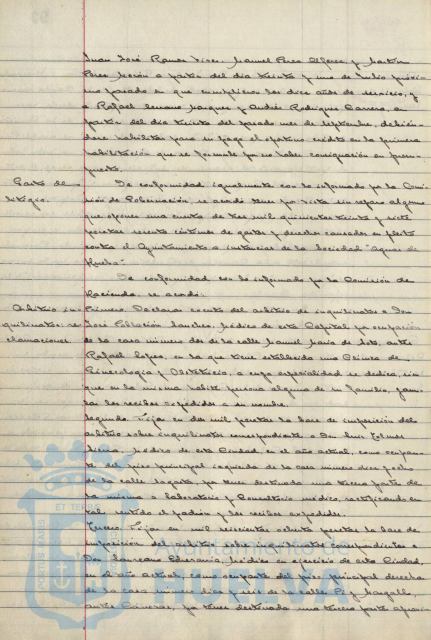 Juan José Ramos Viser, Manuel Perea Alférez y Martín
Perea Morón a partir del día treinta y uno de Julio próxi-
mo pasado en que cumplieron los diez años de servicio, y
a Rafael Lozano Márquez y Andrés Rodríguez Carrero, a
partir del día treinta del pasado mes de septiembre, debién-
dose habilitar para su pago el oportuno crédito en la primera
habilitación que se formule por no haber consignación en presu-
puesto.
Gastos de
litigio.
De conformidad igualmente con lo informado por la Comi-
sión de Gobernación, se acordó tener por vista sin reparo alguno
que oponer una cuenta de tres mil quinientas treinta y siete
pesetas sesenta céntimos de gastos y derechos causados en pleito
contra el Ayuntamiento a instancias de la Sociedad "Aguas de
Huelva".
De conformidad con lo informado por la Comisión de
Hacienda, se acordó:
Arbitrio in-
quilinatos: re-
clamaciones.
Primero. Declarar exento del arbitrio de inquilinatos a Don
José Población Sánchez, Médico de esta Capital por ocupación
de la casa número dos de la calle Manuel María de Soto, antes
Rafael López, en la que tiene establecida una Clínica de
Ginecología y Obstetricia, a cuya especialidad se dedica, sin
que en la misma habite persona alguna de su familia,
los recibos expedidos a su nombre.
Segundo. Fijar en dos mil pesetas la base de imposición del
arbitrio sobre inquilinatos correspondiente a Don Luis
Sierra, Médico de esta Ciudad, en el año actual, como ocupan-
te del piso principal izquierda de la casa número diez y ocho
de la calle Sagasta, por tener destinada una tercera parte de
la misma a laboratorio y Consultorio médico, rectificando en
tal sentido el padrón y los recibos expedidos.
Tercero. Fijar en mil seiscientas ochenta pesetas la base de
imposición del arbitrio sobre inquilinatos correspondiente a
Don Laureano Echevarría, Médico en ejercicio de esta Ciudad,
en el año actual, como ocupante del piso principal derecha
de la casa número diez y seis de la calle Pi y Margall,
antes Cánovas, por tener destinada una tercera parte aproxi-
PORTUS MARIS
ET TERRAE
Ayuntamiento de
HUELVA